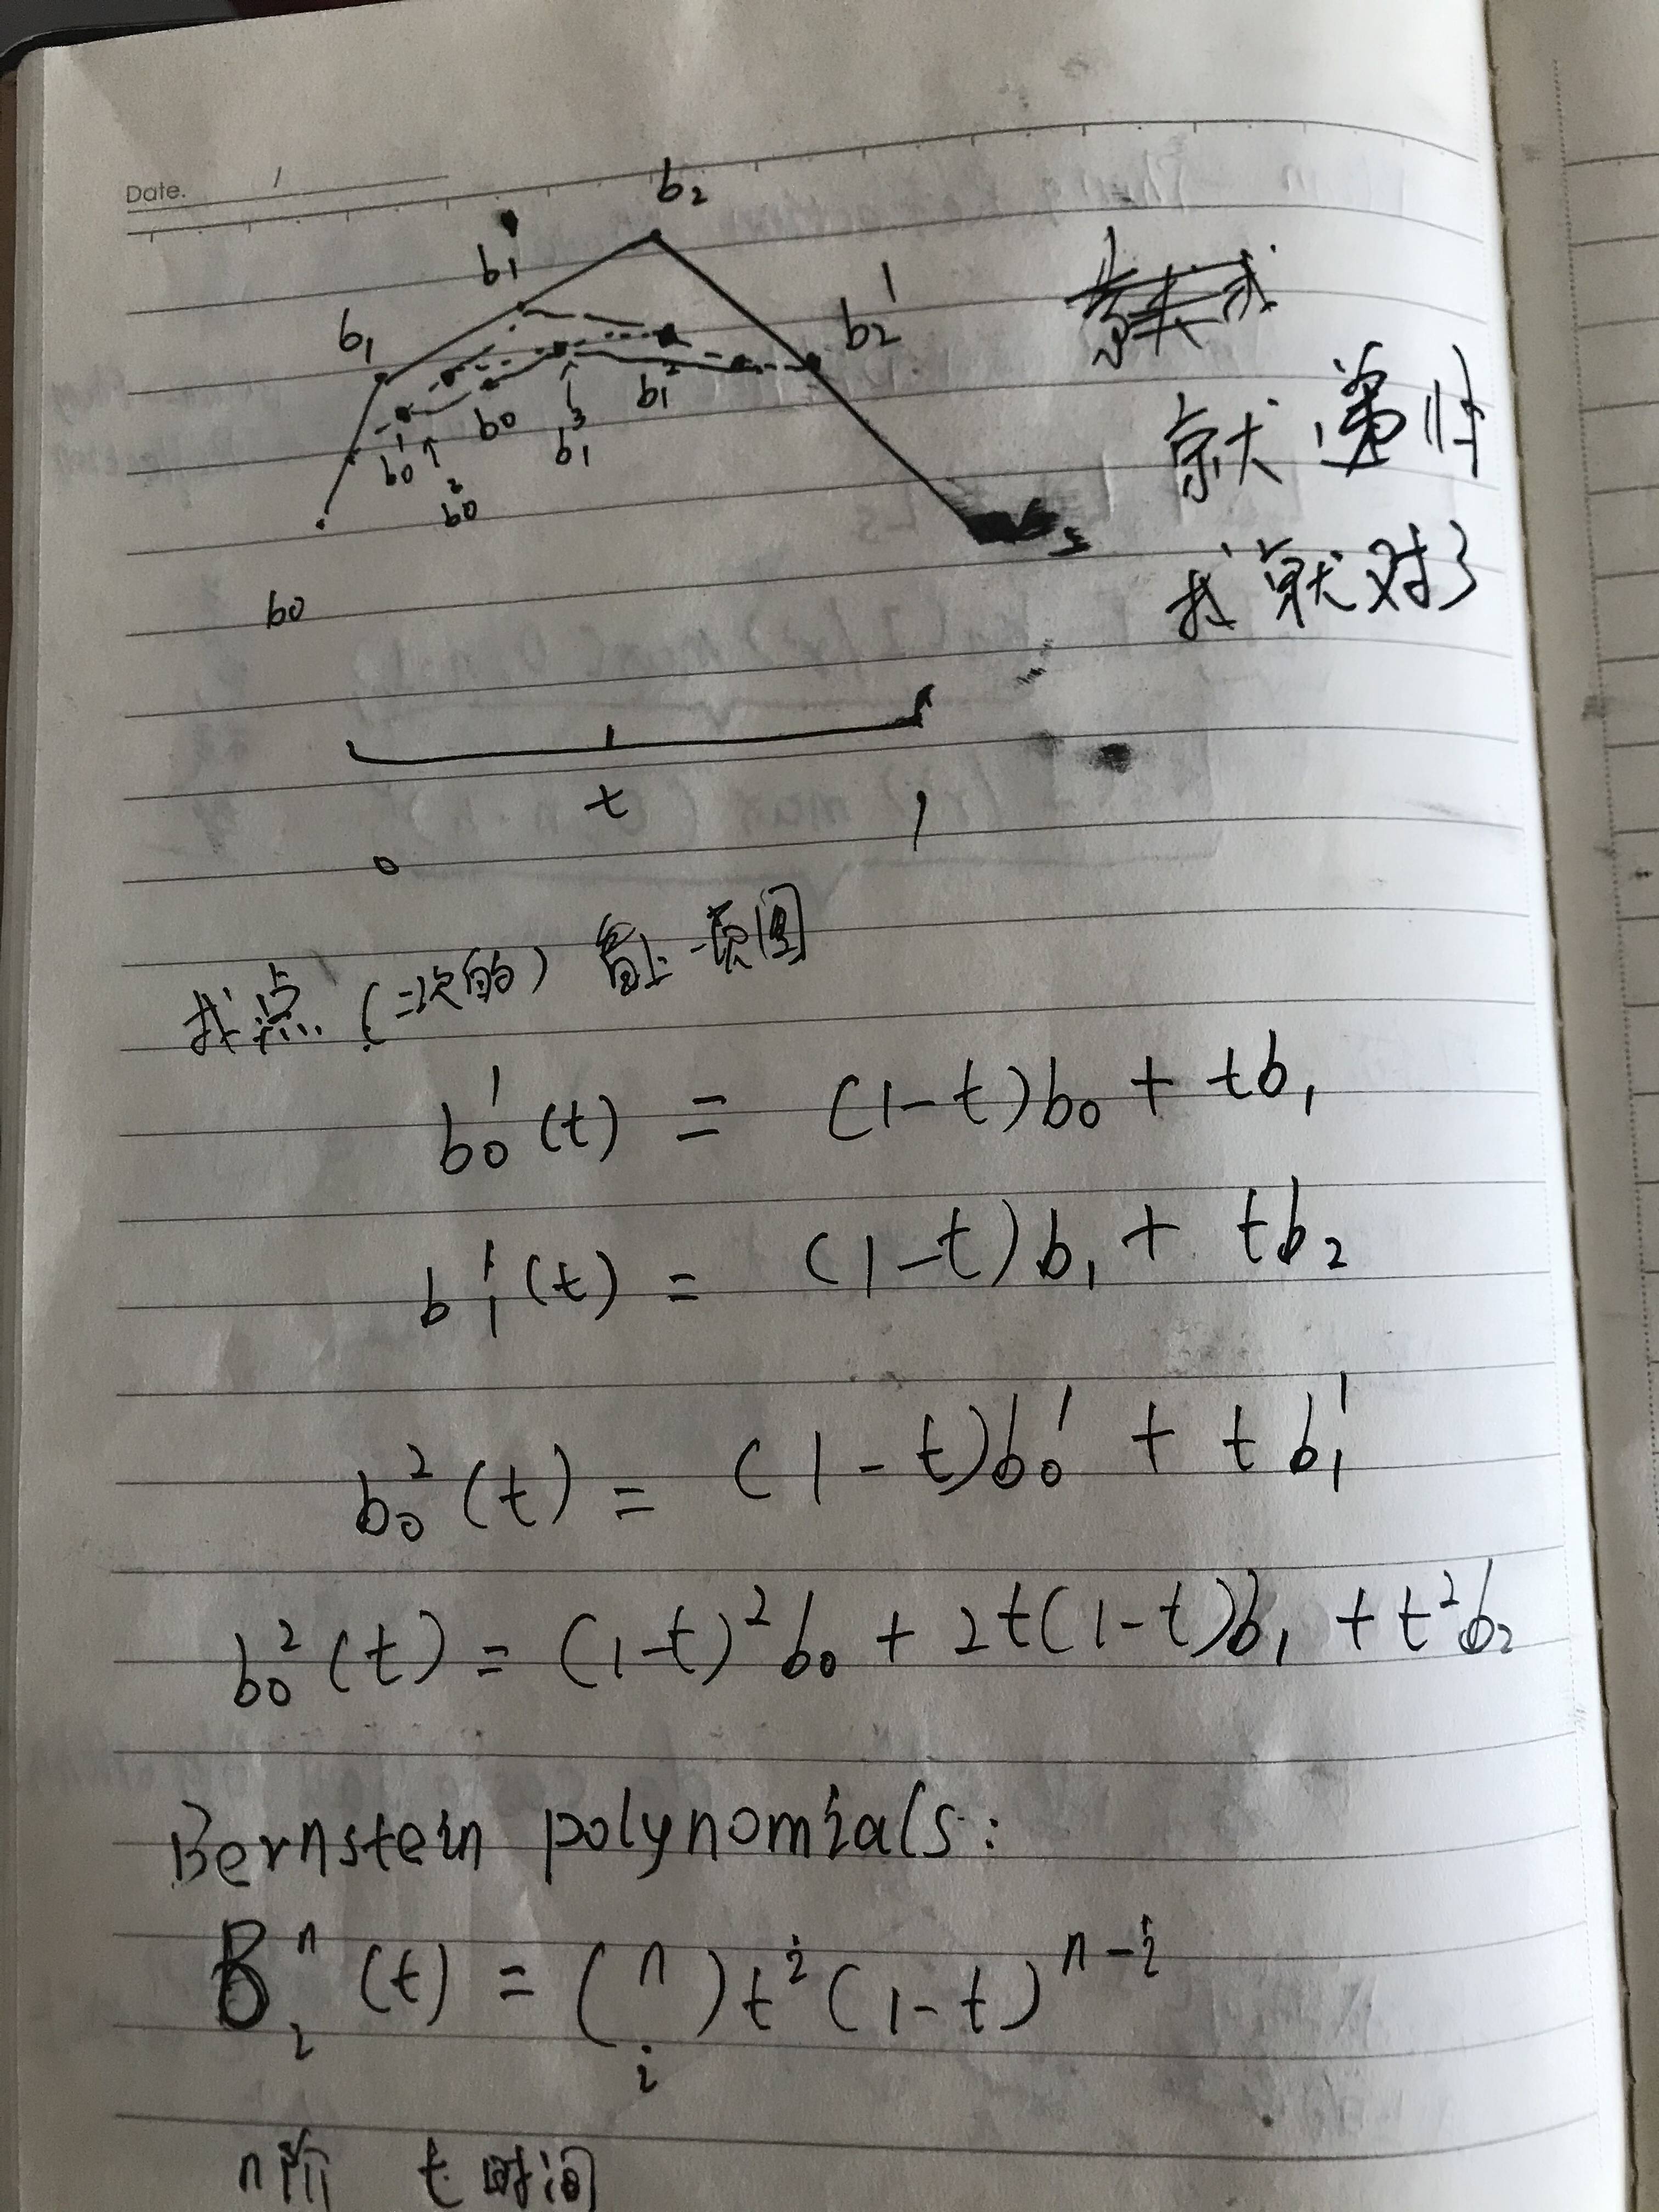 Date. /
b₂
b₁¹
b₂¹
b₁
就递归
b₀ b₁²
b₀¹ b₁³
b₀²
找就对了
b₀
t
0 1
找点 (二次的) 看上一页图
b₀¹(t) = (1-t)b₀ + tb₁
b₁¹(t) = (1-t)b₁ + tb₂
b₀²(t) = (1-t)b₀¹ + tb₁¹
b₀²(t) = (1-t)²b₀ + 2t(1-t)b₁ + t²b₂
Bernstein polynomials:
Bᵢⁿ(t) = (ⁿᵢ)tⁱ(1-t)ⁿ⁻ⁱ
n阶 t 时间